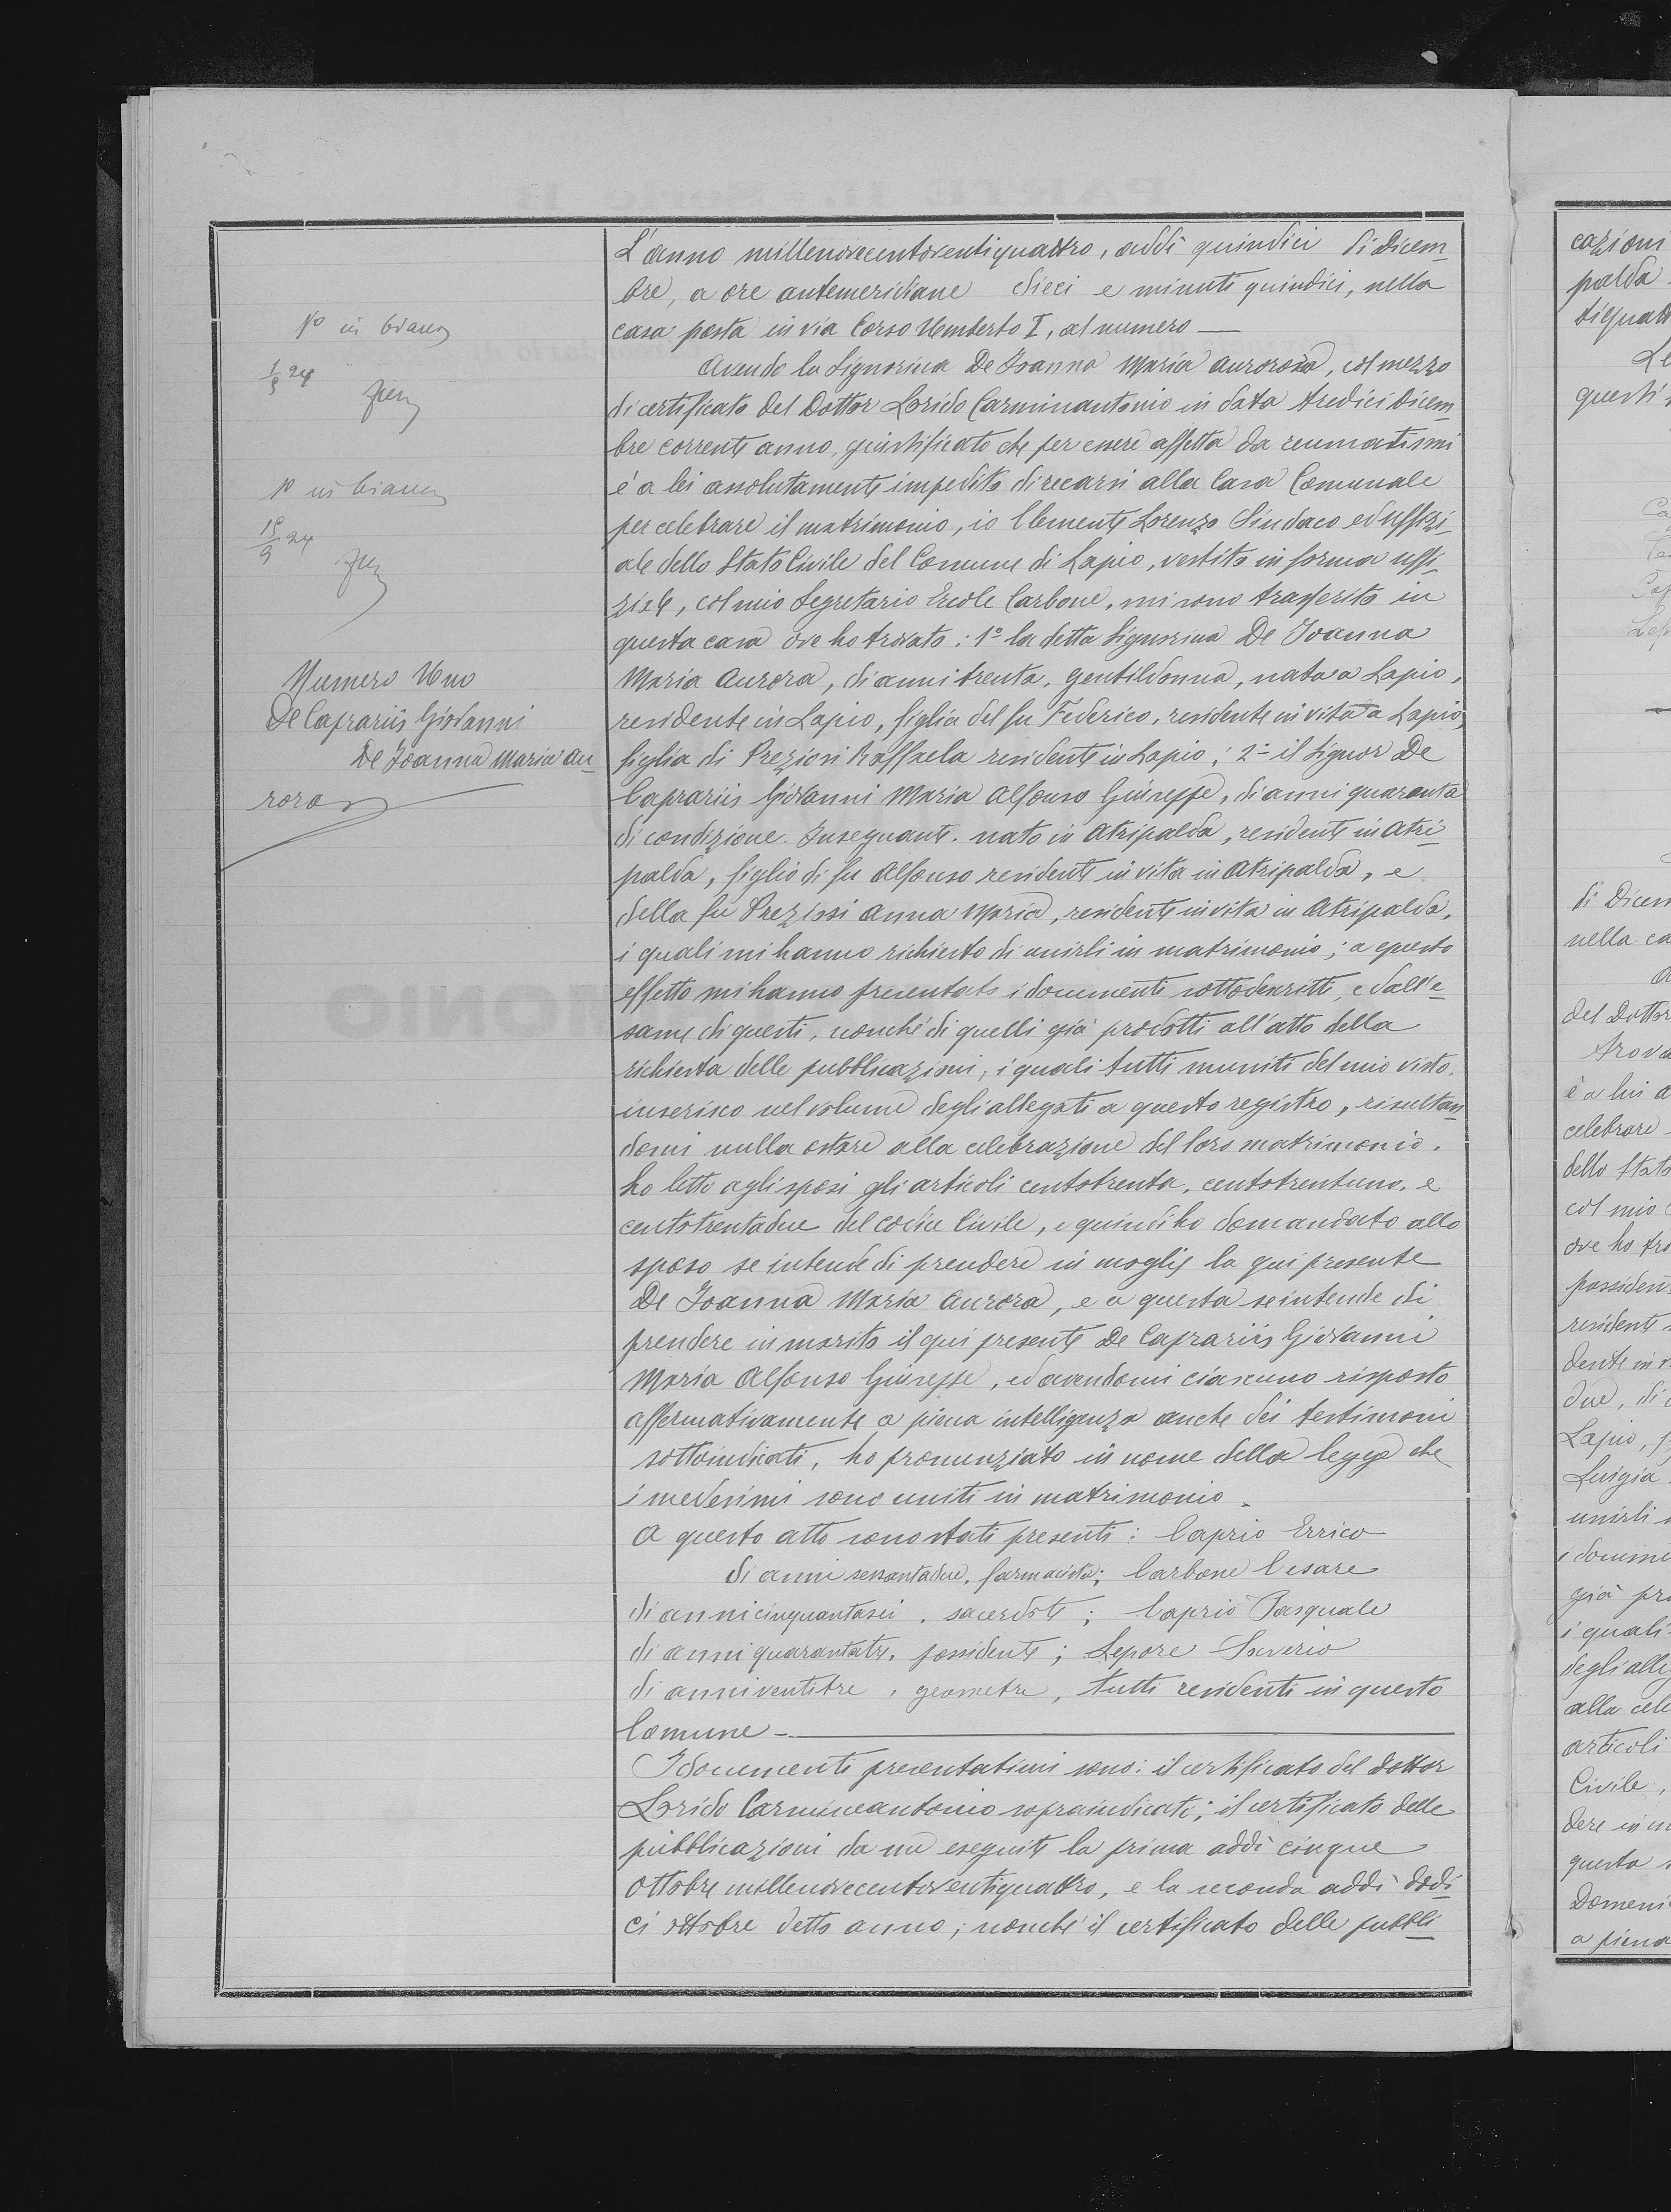 N° in bianco
1/9 24
N° in bianco
18/9 24
Numero Uno
De Caprariis Giovanni
De Joanna Maria Au_
rora
L'anno millenovecentoventiquattro, addì quindici di Dicem_
bre, a ore antemeridiane dieci e minuti quindici, nella
casa posta in via Corso Umberto I, al numero —
Avendo la Signorina De Joanna Maria Aurora, col mezzo
di certificato del Dottor Lorido Carminantonio in data tredici Dicem_
bre corrente anno, giustificato che per essere affetta da reumatismi
è a lei assolutamente impedito di recarsi alla Casa Comunale
per celebrare il matrimonio, io Clemente Lorenzo Sindaco ed Uffizi_
ale dello Stato Civile del Comune di Lapio, vestito in forma uffi_
ziale, col mio Segretario Ercole Carbone, mi sono trasferito in
questa casa ove ho trovato: 1° la detta Signorina De Joanna
Maria Aurora, di anni trenta, gentildonna, nata a Lapio,
residente in Lapio, figlia del fu Federico, residente in vita a Lapio,
figlia di Preziosi Raffaela residente in Lapio; 2° il Signor De
Caprariis Giovanni Maria Alfonso Giuseppe, di anni quaranta
di condizione Insegnante, nato in Atripalda, residente in Atri_
palda, figlio di fu Alfonso residente in vita in Atripalda, e
della fu Preziosi Anna Maria, residente in vita in Atripalda,
i quali mi hanno richiesto di unirli in matrimonio; a questo
effetto mi hanno presentato i documenti sottodescritti, e dall'e_
same di questi, nonché di quelli già prodotti all'atto della
richiesta delle pubblicazioni, i quali tutti muniti del mio visto,
inserisco nel volume degli allegati a questo registro, risultan_
domi nulla ostare alla celebrazione del loro matrimonio.
ho letto agli sposi gli articoli centotrenta, centotrentuno, e
centotrentadue del codice Civile, e quindi ho domandato allo
sposo se intende di prendere in moglie la qui presente
De Joanna Maria Aurora, e a questa se intende di
prendere in marito il qui presente De Caprariis Giovanni
Maria Alfonso Giuseppe, ed avendomi ciascuno risposto
affermativamente a piena intelligenza anche dei testimoni
sottoindicati, ho pronunziato in nome della legge che
i medesimi sono uniti in matrimonio.
A questo atto sono stati presenti: Caprio Errico
di anni sessantadue, farmacista; Carbone Cesare
di anni cinquantasei, sacerdote; Caprio Pasquale
di anni quarantatre, possidente; Lepore Saverio
di anni ventitre, geometra, tutti residenti in questo
Comune —
I documenti presentatimi sono: il certificato del Dottor
Lorido Carmineantonio sopraindicato; il certificato delle
pubblicazioni da me eseguite la prima addì cinque
Ottobre millenovecentoventiquattro, e la seconda addì dodi_
ci ottobre detto anno; nonché il certificato delle pubbli_
cazioni
palda
tiquatt
Le
questi
di Dicem
nella ca
del Dottor
trova
è a lui a
celebrare
dello Stato
col mio
ove ho tro
possiden
residente
dente in
due, di
Lapio,
Luigia
unirli
i docume
già pro
i quali
degli alleg
alla cele
articoli
Civile,
dere in m
questa
Domeni
a piena